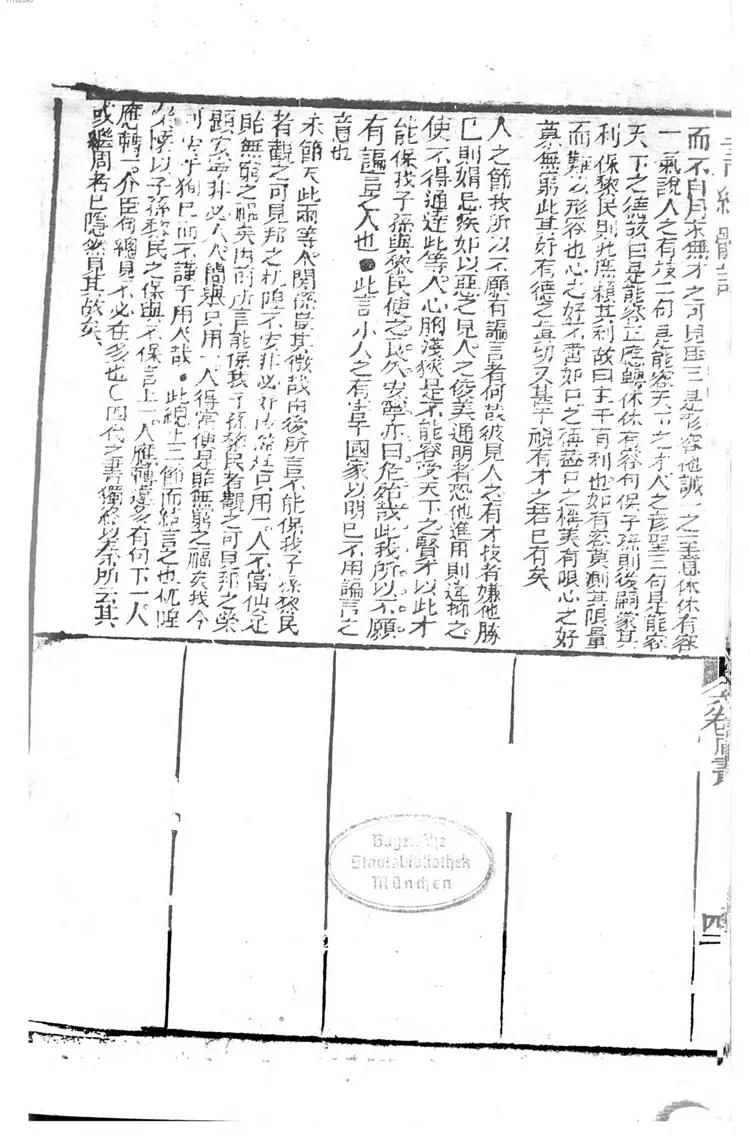 書經體註
而不自用來無才之可見聖三是形容他誠一之意休休有容
一氣說人之有技二句是能容天下之才人之彥聖三句是能容
天下之德故曰是能容正應轉休休有容句保子孫則後嗣蒙其
利保黎民則兆庶賴其利故曰亦職有利也如有容莫測其限量
而難以形容也心之好不啻如口之稱蓋口之稱美有限心之好
慕無窮此其好有德之真切又甚于視有才之若已有矣
人之節我所以不願有諞言者何哉彼見人之有才技者嫌他勝
已則娟忌疾如以惡之見人之俊美通明者恐他進用則違抑之
使不得通達此等人心胸淺狹是不能容受天下之賢才以此才
能保我子孫與黎民使之長久安寧亦曰危殆哉此我所以不願
有諞言之人也●此言小人之有害于國家以明已不用諞言之
音也
末節夫此兩等人關係豈其微哉由後所言不能保我子孫黎民
者觀之可見邦之杌隉不安非必 只用一人不當便足
貽無窮之禍矣由前所言能保我子孫黎民者觀之可見邦之榮
懷 非必人人 只用一人得當便是貽無窮之福矣我今
可 狗已而不謹于用人哉●此總上二節而結言之也杌隉
榮懷以子孫黎民之保與不保言上一人應轉違多有何下一人
應轉一介臣何總見不必在多也○四代之書獨終以秦所云其
或繼周者已隱然見其故矣
六卷周書
四二
Bayerische
Staatsbibliothek
München